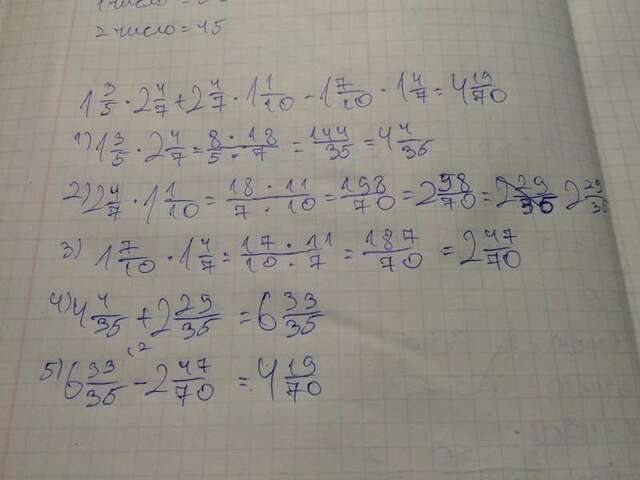 2 число = 45
1 3/5 · 2 4/7 + 2 4/7 · 1 1/10 - 1 7/10 · 1 4/7 = 4 19/70
1) 1 3/5 · 2 4/7 = 8 · 18/5 · 7 = 144/35 = 4 4/35
2) 2 4/7 · 1 1/10 = 18 · 11/7 · 10 = 198/70 = 2 58/70 = 2 29/35 2 29/35
3) 1 7/10 · 1 4/7 = 17 · 11/10 · 7 = 187/70 = 2 47/70
4) 4 4/35 + 2 29/35 = 6 33/35
5) 6 33/35 (2 - 2 47/70 = 4 19/70